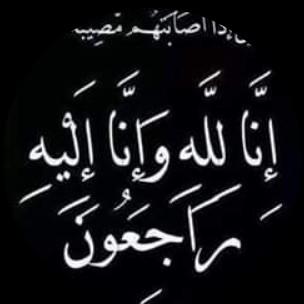 إِذَا أَصَابَتْهُم مُّصِيبَةٌ
إِنَّا لِلَّهِ وَإِنَّا إِلَيْهِ
رَاجَعُونَ